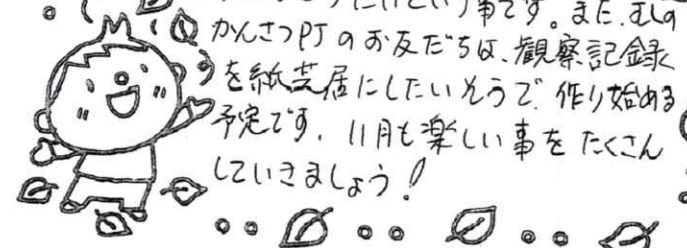 という事です。また、むしの
かんさつPJのお友だちは、観察記録
を紙芝居にしたいそうで、作り始める
予定です。11月も楽しい事をたくさん
していきましょう!